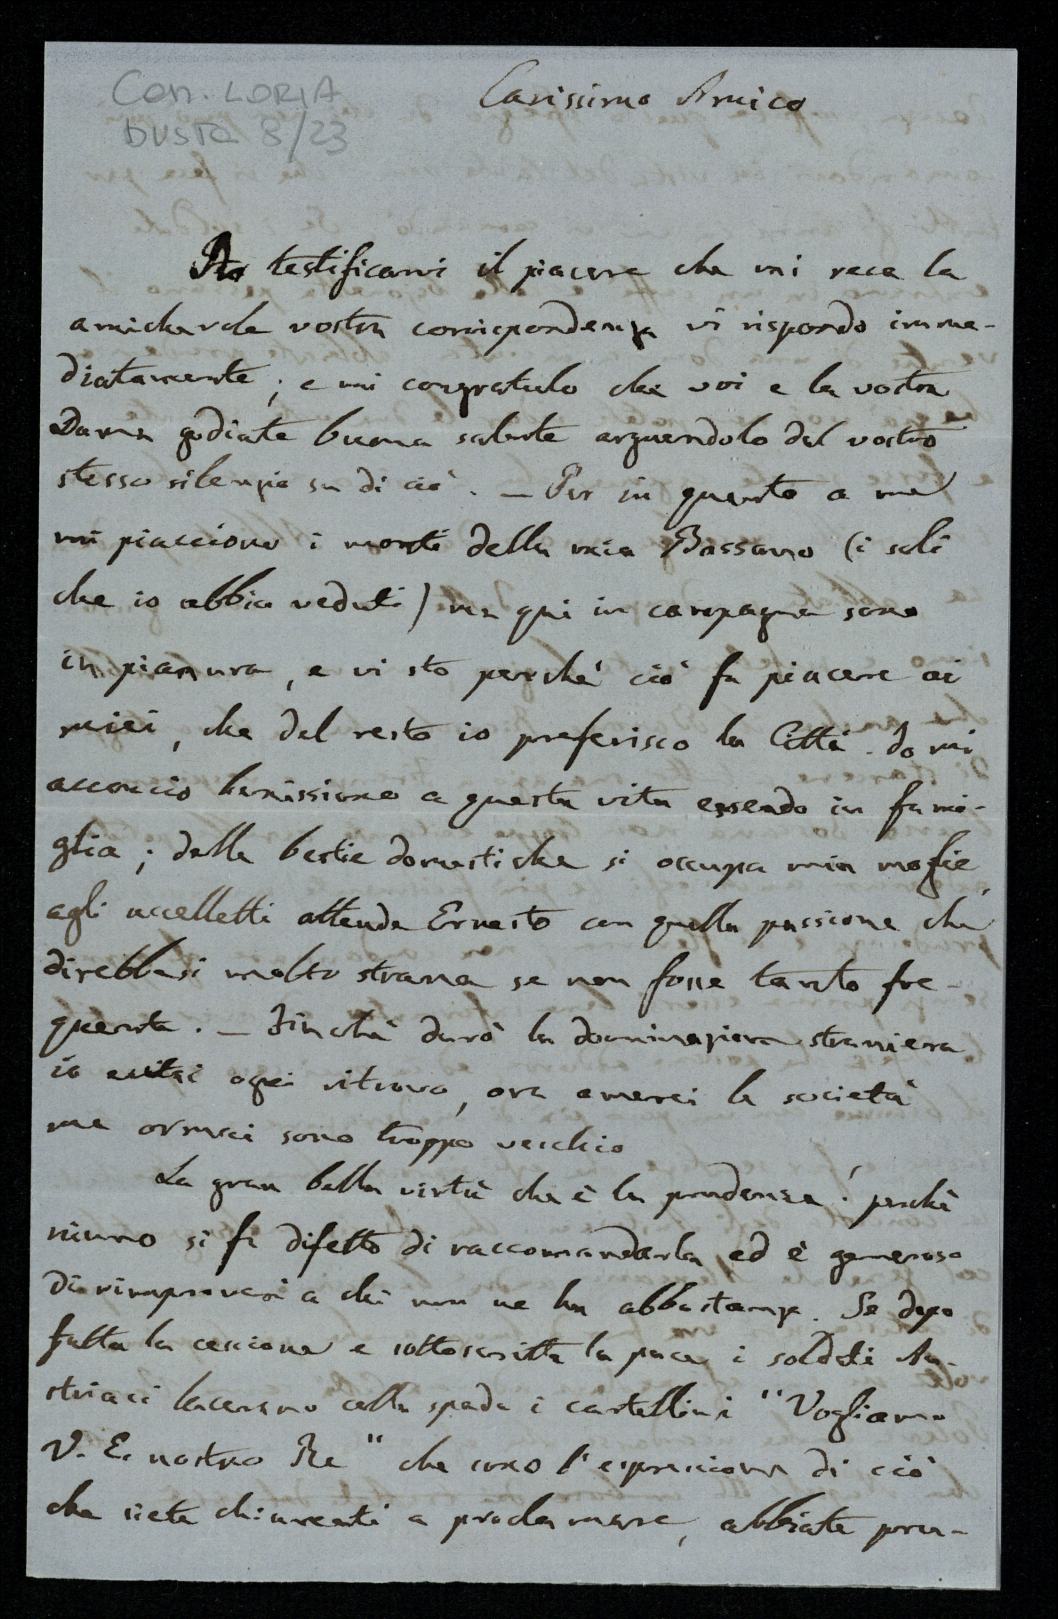 Con. LORIA
BUSTA 8/23
Carissimo Amico
A testificarvi il piacere che mi reca la
amichevole vostra corrispondenza vi rispondo imme-
diatamente; e mi congratulo che voi e la vostra
Dama godiate buona salute arguendolo dal vostro
stesso silenzio su di ciò. — Per in quanto a me
mi piacciono i monti della mia Bassano (i soli
che io abbia veduti) ma qui in campagna sono
in pianura, e vi sto perchè ciò fa piacere ai
miei, che del resto io preferisco la Città. Io mi
acconcio benissimo a questa vita essendo in fami-
glia; delle bestie domestiche si occupa mia moglie,
agli uccelletti attende Ernesto con quella passione che
direbbesi molto strana se non fosse tanto fre-
quente. — Finchè durò la dominazione straniera
io evitai ogni ritrovo, ora amerei la società
ma ormai sono troppo vecchio
La gran bella virtù che è la prudenza! perchè
niuno si fa difetto di raccomandarla, ed è generoso
di rimproveri a chi non ne ha abbastanza. Se dopo
fatta la cessione e sottoscritta la pace i soldati Au-
striaci lacerano colla spada i cartellini "Vogliamo
V. E. nostro Re" che sono l'espressione di ciò
che siete chiamati a proclamare, abbiate pru-